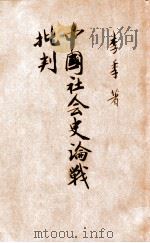 李季著
中國社会史論戰
批判